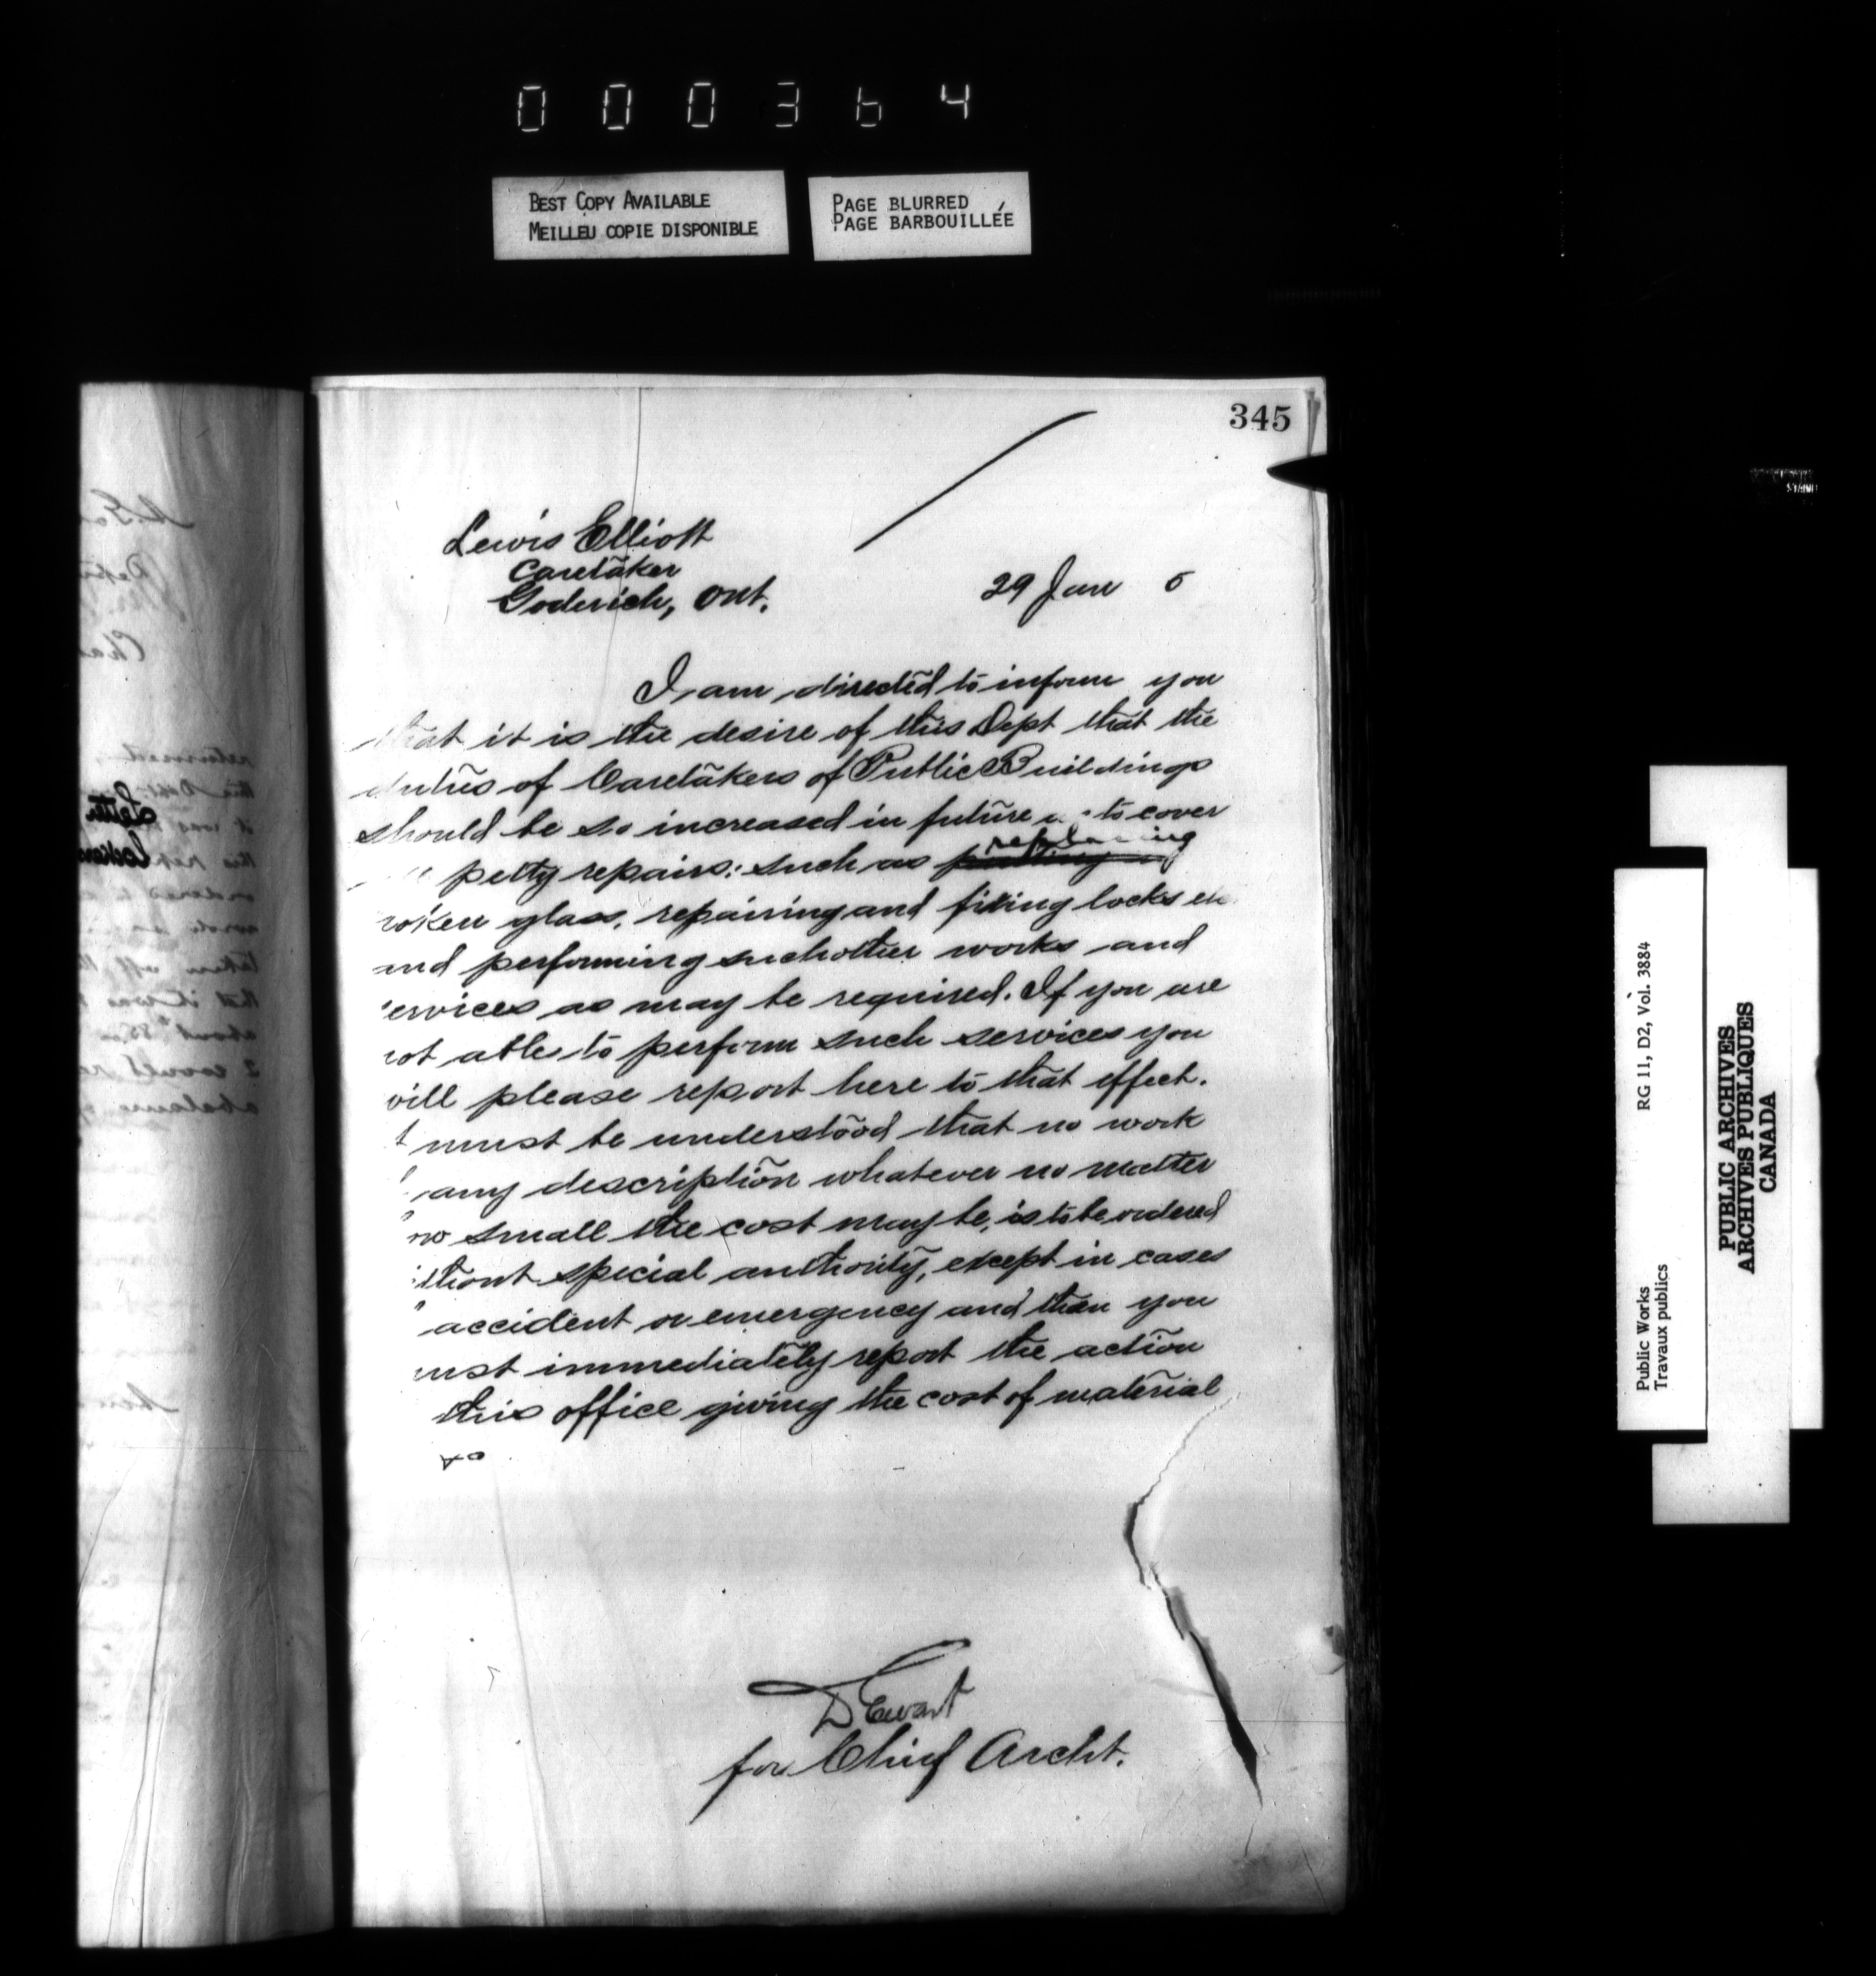 000364
BEST COPY AVAILABLE
MEILLEU COPIE DISPONIBLE
PAGE BLURRED
PAGE BARBOUILLÉE
345
Lewis Elliott
Caretaker
Goderich, Ont.
29 Jan 6
I am directed to inform you
that it is the desire of this Dept that the
duties of Caretakers of Public Buildings
should be so increased in future to cover
replacing
petty repairs: such as
roken glass, repairing and fixing locks etc
nd performing such other works and
ervices as may be required. If you are
not able to perform such services you
will please report here to that effect.
t must be understood that no work
any description whatever no matter
ow small the cost may be, is to be ordered
ithout special authority, except in cases
accident or emergency and then you
ust immediately report the action
this office giving the cost of material
&c
D Ewart
for Chief Archt.
Public Works
Travaux publics
RG 11, D2, Vol. 3884
PUBLIC ARCHIVES
ARCHIVES PUBLIQUES
CANADA